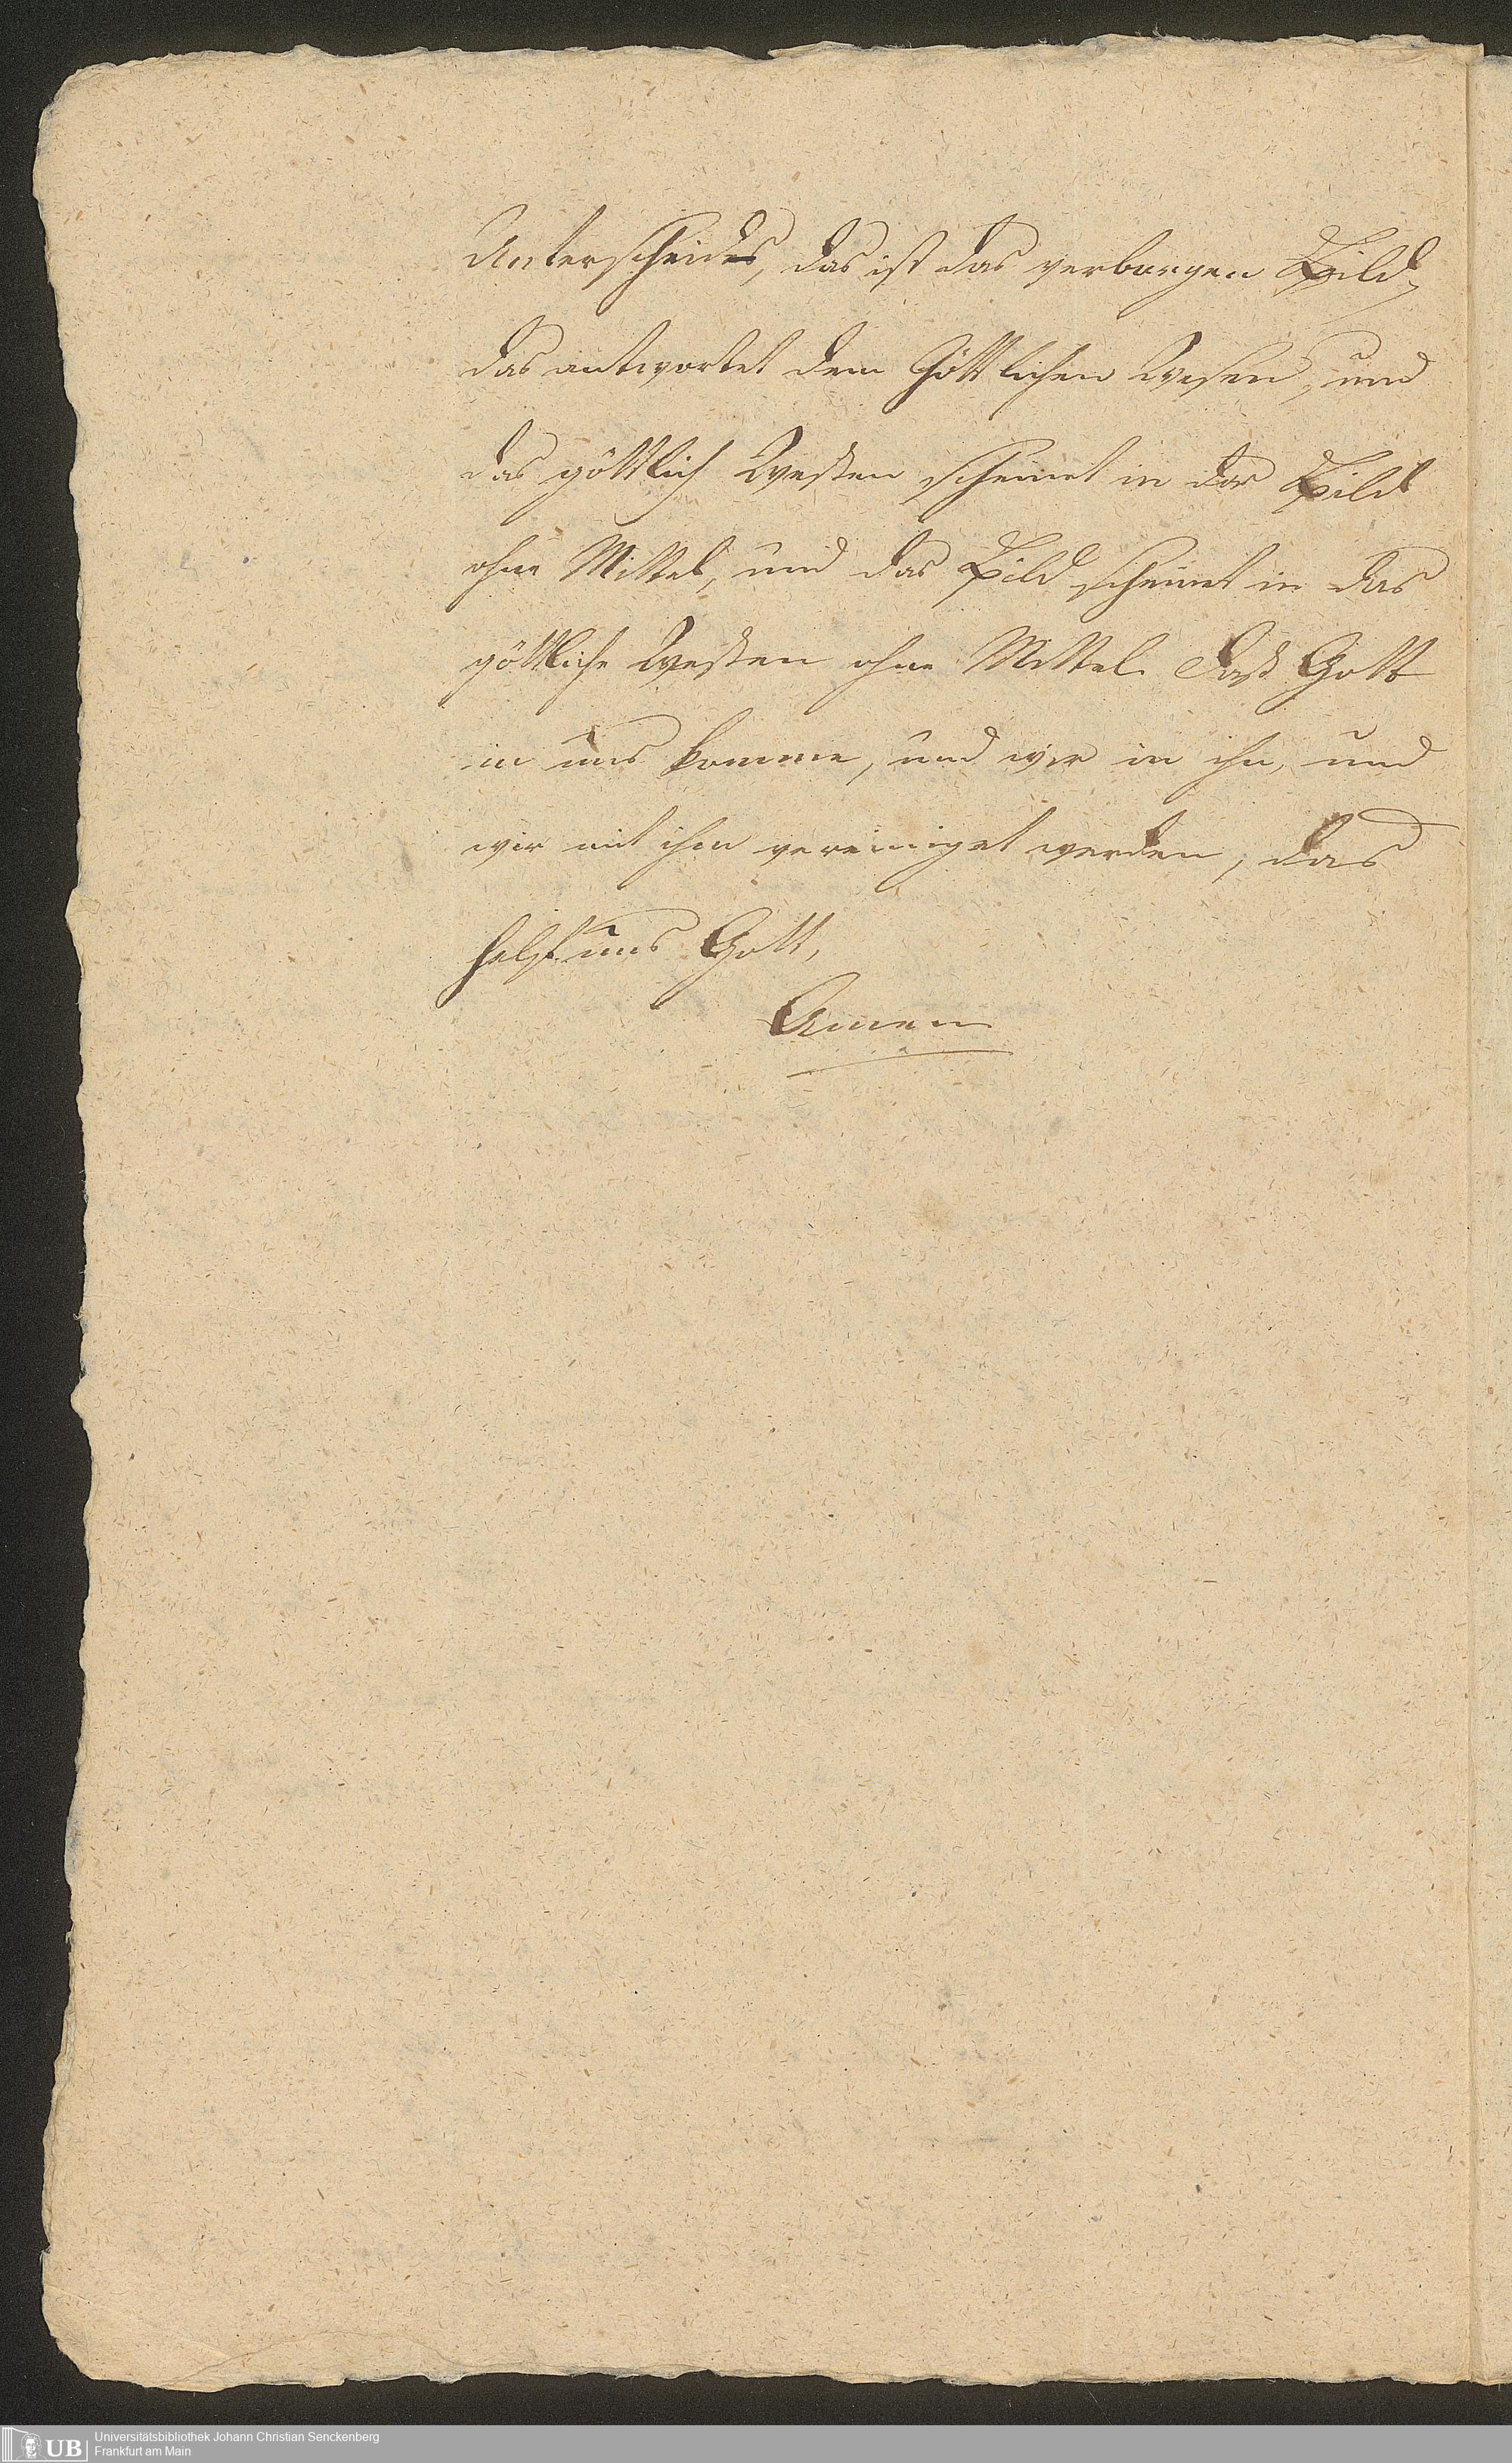 Unterscheids, das ist das verborgen Bild,
das antwortet dem Göttlichen Wesen, und
das göttlich Wesen scheinet in das Bild
ohne Mittel, und das Bild scheinet in das
göttliche Wesen ohne Mittel. Daß Gott
in uns komme, und wir in ihn, und
wir mit ihm vereiniget werden, das
helf uns Gott,
Amen
UB Universitätsbibliothek Johann Christian Senckenberg
Frankfurt am Main